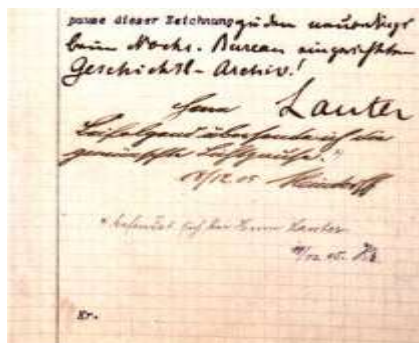 pause dieser Zeichnung zu den neuerdings
beim Nachr. Bureau eingerichteten
Geschichtl-Archiv!
Herrn Lauter
Beifolgend übersende ich die
gewünschte Lichtpause."
18/12 05
" befindet sich bei Herrn Lauter
05. Kr.
Kr.